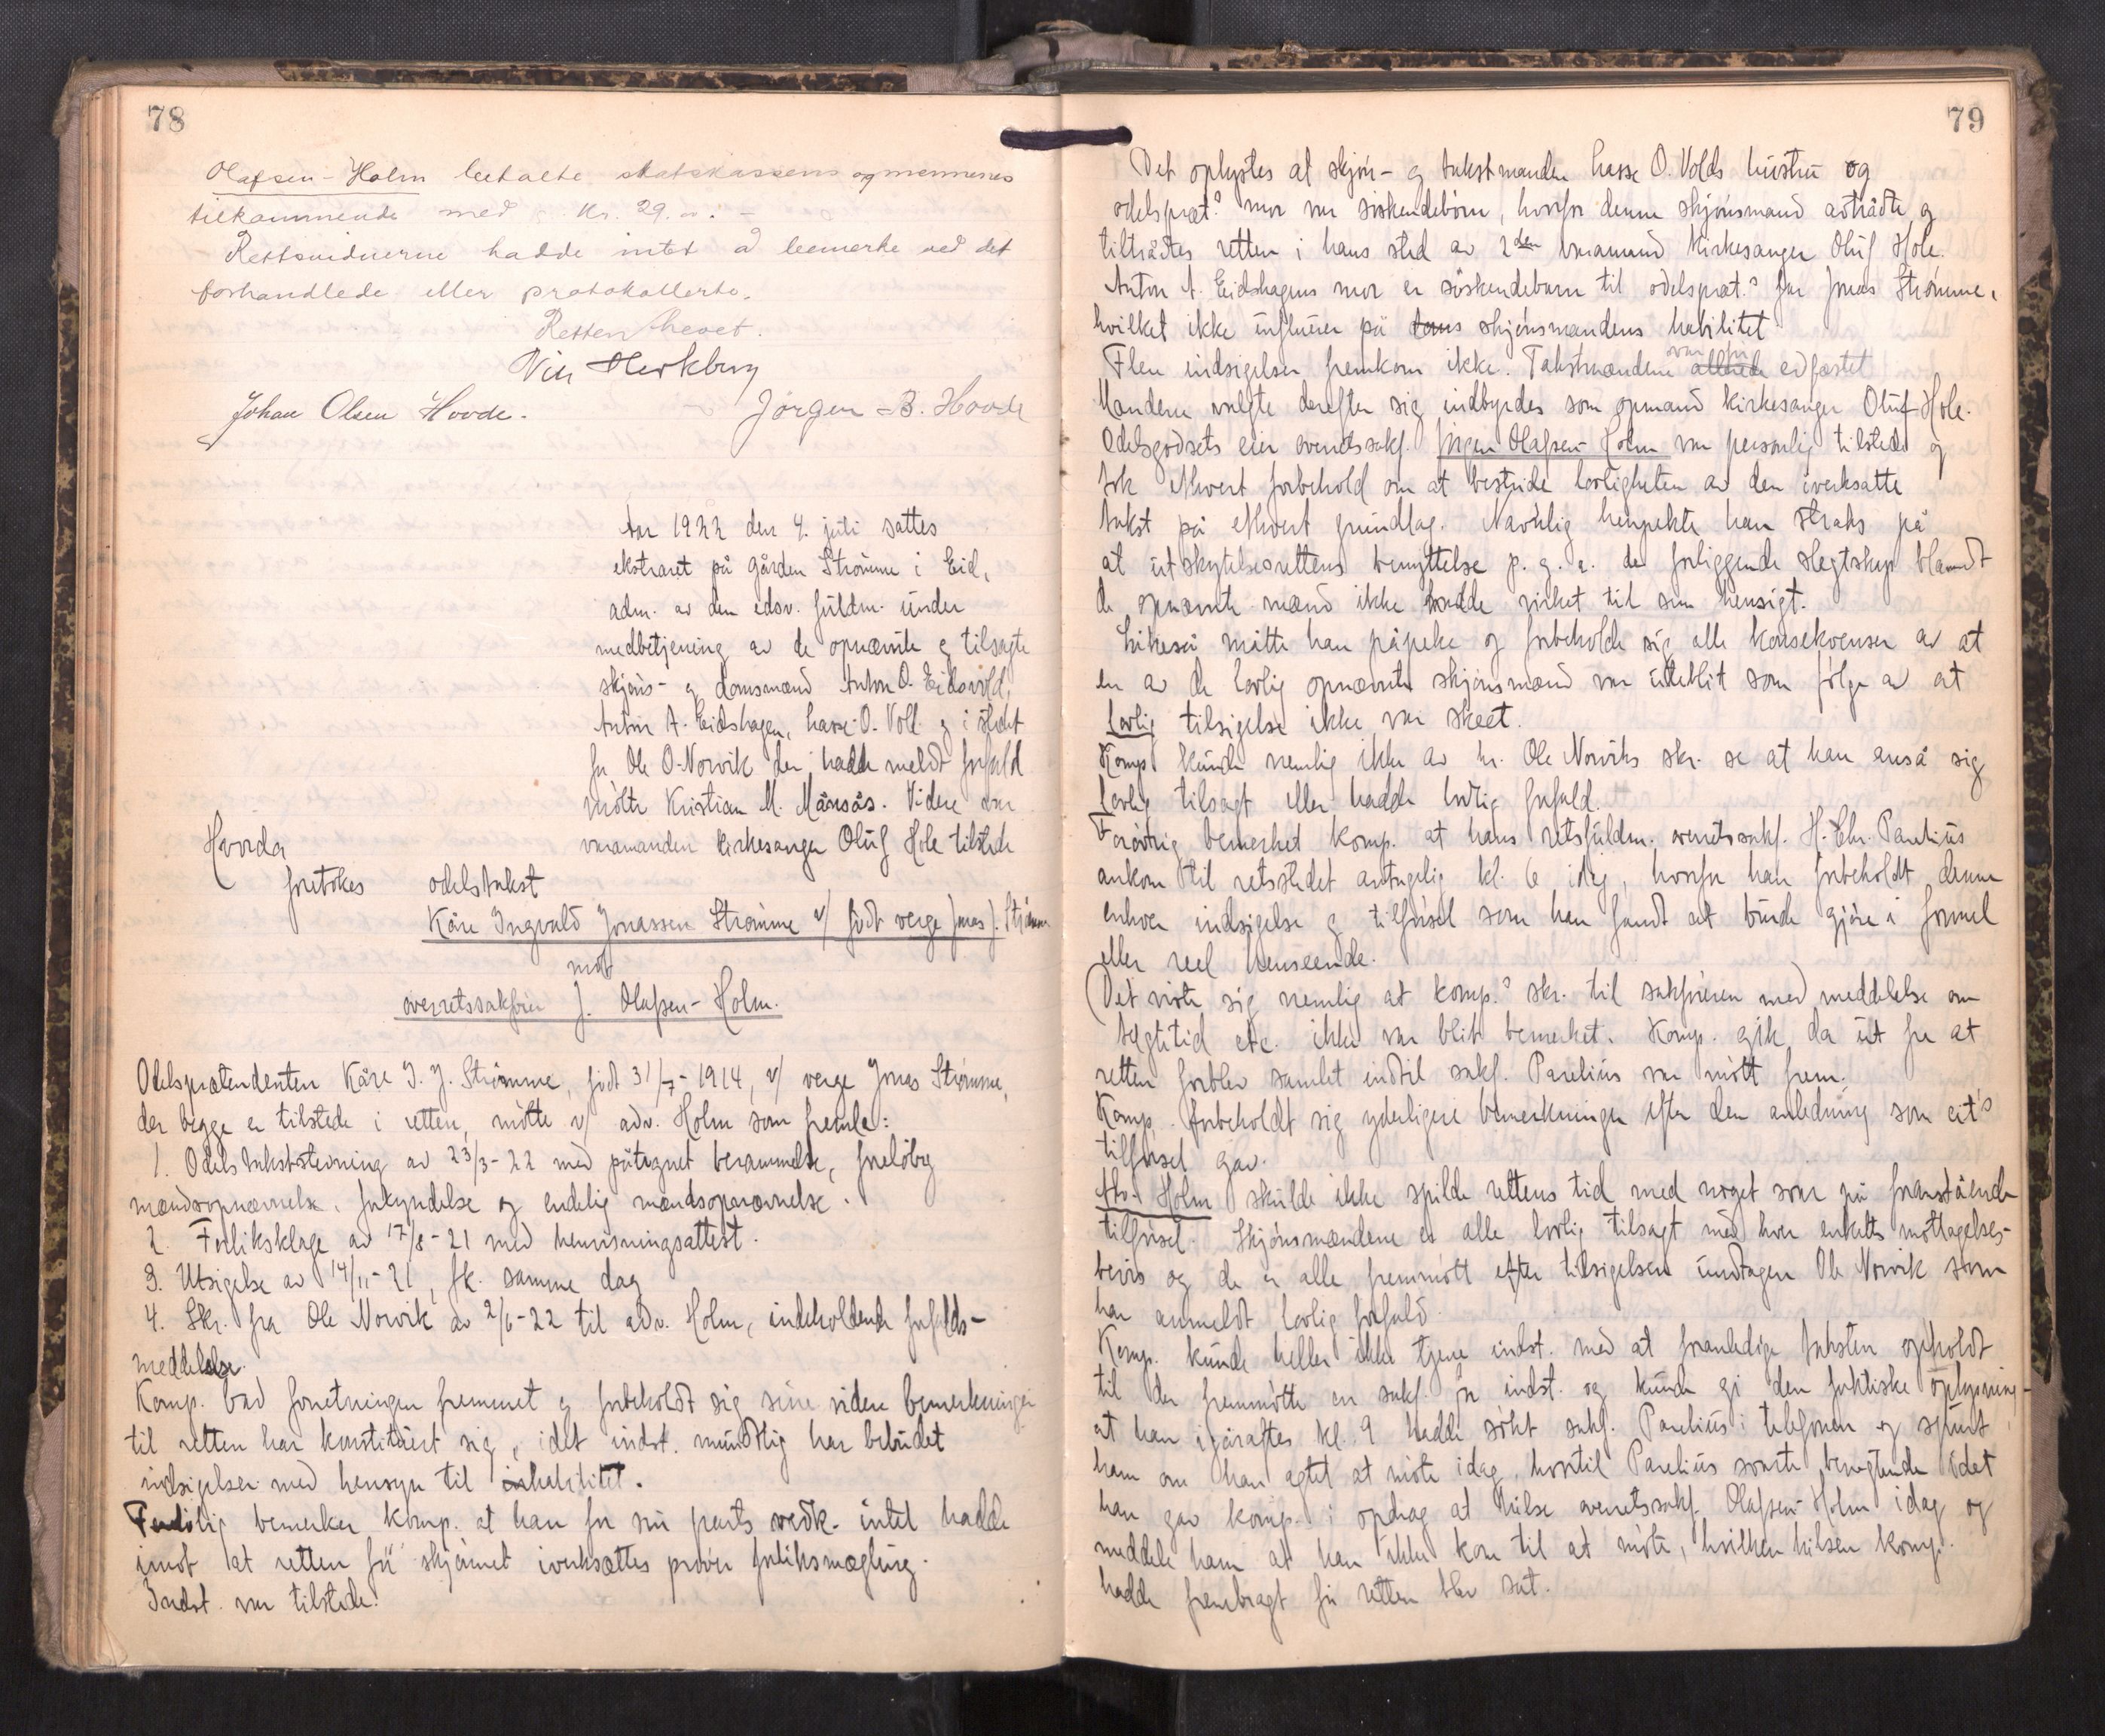 78
Olafsen-Holm betalte statskassens og mennenes
tilkommende med kr. 29.00. -
Rettsvidnerne hadde intet å bemerke ved det
forhandlede eller protokollerte.
Retten hevet.
Johan Olsen Hovde. Jörgen B. Hovde
Aar 1922 den 4. juli sattes
ekstraret på gården Strömme i Eid,
adm. av den edsv. fuldm. under
medbetjening av de opnævnte og tilsagte
skjöns- og domsmænd Anton O. Eidsvold,
Anton A. Eidshagen, Lasse O. Voll og i stedet
for Ole O. Norvik der hadde meldt forfald
mötte Kristian M. Månsås. Videre var
varamanden kirkesanger Oluf Hole tilstede
Hvorda
foretokes odelstakst
Kåre Ingvald Jonassen Strömme v/ födt verge Jonas J. Strömme
mot
overretssakförer J. Olafsen-Holm.
Odelsprætendenten Kåre I. J. Strömme, födt 31/7-1914, v/ verge Jonas Strömme,
der begge er tilstede i retten, mötte v/ adv. Holm som fremla:
1. Odelstakststevning av 23/3-22 med påtegnet berammelse, foreløbig
mandsopnævnelse, forkyndelse og endelig mandsopnævnelse.
2. Forliksklage av 17/8-21 med henvisningsattest.
3. Utsigelse av 14/11-21, fk. samme dag
4. Skr. fra Ole Norvik av 2/6-22 til adv. Holm, indeholdende forfalds-
meddelelse.
Komp. bad forretningen fremmet og forbeholdt sig sine videre bemerkninger
til retten har konstituert sig, idet indst. mundtlig har bebudet
indsigelser med hensyn til inhabilitet.
Foreløbig bemerker komp. at han for sin parts vedk. intet hadde
imot at retten før skjønnet iverksættes prøver forliksmægling.
Indst. var tilstede.
79
Det oplystes at skjön- og takstmanden Lasse O. Volds hustru og
odelspræt.s mor var söskendebörn, hvorfor denne skjönsmand avtrådte og
tiltrådtes retten i hans sted av 2den varamand kirkesanger Oluf Hole.
Anton A. Eidshagens mor er söskendebarn til odelspræt.s far Jonas Strömme,
hvilket ikke influerer på hans skjönsmandens habilitet
Flere indsigelser fremkom ikke. Takstmændene allerede var før edfæstet
Mændene valgte derefter sig indbyrdes som opmand kirkesanger Oluf Hole.
Odelsgodsets eier overretssakf. Jörgen Olafsen-Holm var personlig tilstede og
tok ethvert forbehold om at bestride lovligheten av den iverksatte
takst på ethvert grundlag. Navnlig henpekte han straks på
at utskytelsesrettens benyttelse p. g. a. det foreliggende slegtskap blandt
de opnævnte mænd ikke hadde virket til sin hensigt.
Likeså måtte han påpeke og forbeholde sig alle konsekvenser av at
en av de lovlig opnævnte skjönsmænd var uteblit som følge av at
lovlig tilsigelse ikke var skeet.
Komp. kunde nemlig ikke av hr. Ole Norviks skr. se at han anså sig
lovlig tilsagt eller hadde lovlig forfald.
Forøvrig bemerket komp. at hans retsfuldm. overretssakf. H. Chr. Parelius
ankom til retsstedet antagelig kl. 6 idag, hvorfor han forbeholdt denne
enhver indsigelse og tilførsel som han fandt at burde gjöre i formel
eller reel henseende.
(Det viste sig nemlig at komp.s skr. til sakføreren med meddelelse om
tegtetid etc. ikke var blit bemerket. Komp. gik da ut fra at
retten forblev samlet indtil sakf. Parelius var møtt frem.
Komp. forbeholdt sig yderligere bemerkninger efter den anledning som cit.s
tilførsel gav.
Adv. Holm skulde ikke spilde rettens tid med noget svar på foranstående
tilførsel. Skjönsmændene er alle lovlig tilsagt med hver enkelts mottagelses-
bevis og de er alle fremmött efter tilsigelsen undtagen Ole Norvik som
har anmeldt lovlig forfald.
Komp. kunde heller ikke tjene indst. med at foranledige taksten opholdt
til der fremmötte en sakf. for indst. og kunde gi den faktiske oplysning
at han igåraftes kl. 9 hadde søkt sakf. Parelius i telefonen og spurt
ham om han agtet at møte idag, hvortil Parelius svarte benegtende idet
han gav komp. i opdrag at hilse overretssakf. Olafsen-Holm idag og
meddele ham at han ikke kom til at møte, hvilken hilsen komp.
hadde frembragt før retten blev sat.